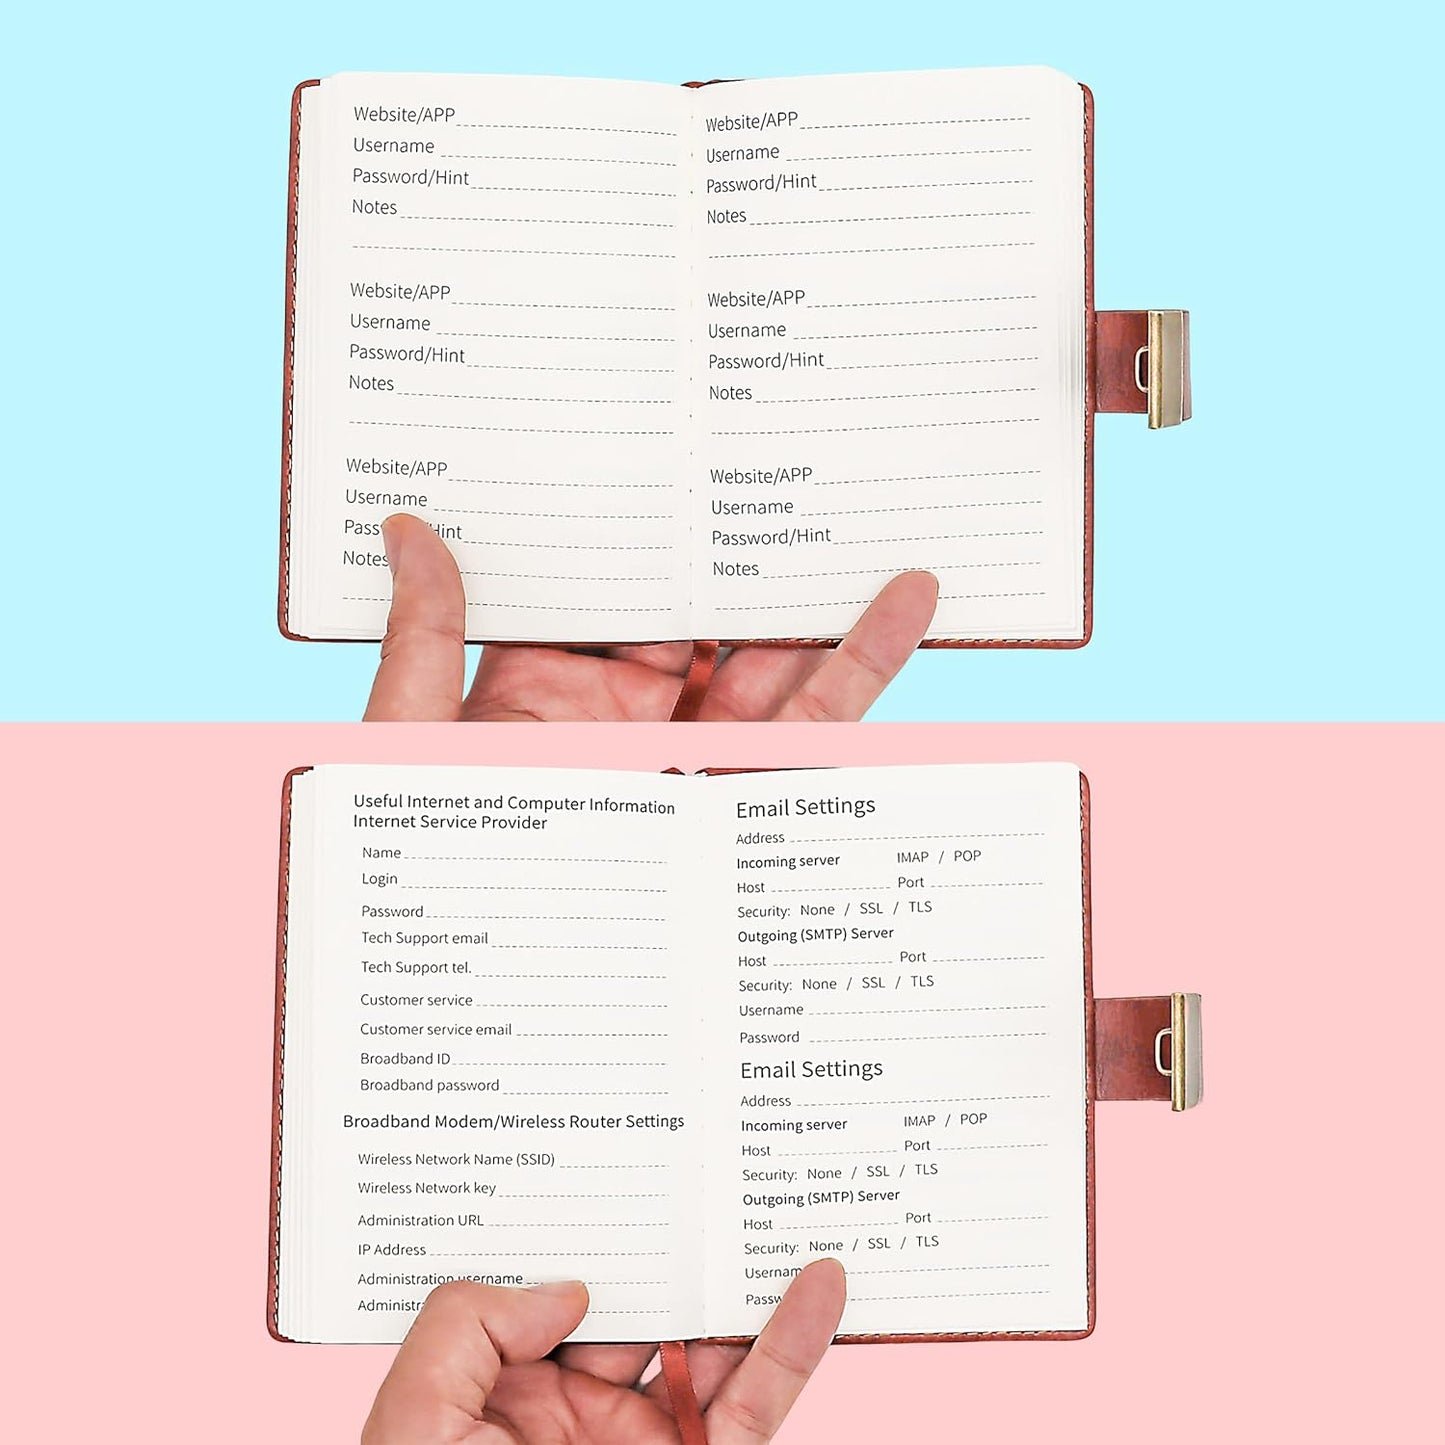 Website/APP
Username
Password/Hint
Notes
Website/APP
Username
Password/Hint
Notes
Website/APP
Username
Hint
Notes
Website/APP
Username
Password/Hint
Notes
Website/APP
Username
Password/Hint
Notes
Website/APP
Username
Password/Hint
Notes
Useful Internet and Computer Information
Internet Service Provider
Name
Login
Password
Tech Support email
Tech Support tel.
Customer service
Customer service email
Broadband ID
Broadband password
Broadband Modem/Wireless Router Settings
Wireless Network Name (SSID)
Wireless Network key
Administration URL
IP Address
Administration username
Email Settings
Address
Incoming server IMAP / POP
Host Port
Security: None / SSL / TLS
Outgoing (SMTP) Server
Host Port
Security: None / SSL / TLS
Username
Password
Email Settings
Address
Incoming server IMAP / POP
Host Port
Security: None / SSL / TLS
Outgoing (SMTP) Server
Host Port
Security: None / SSL / TLS